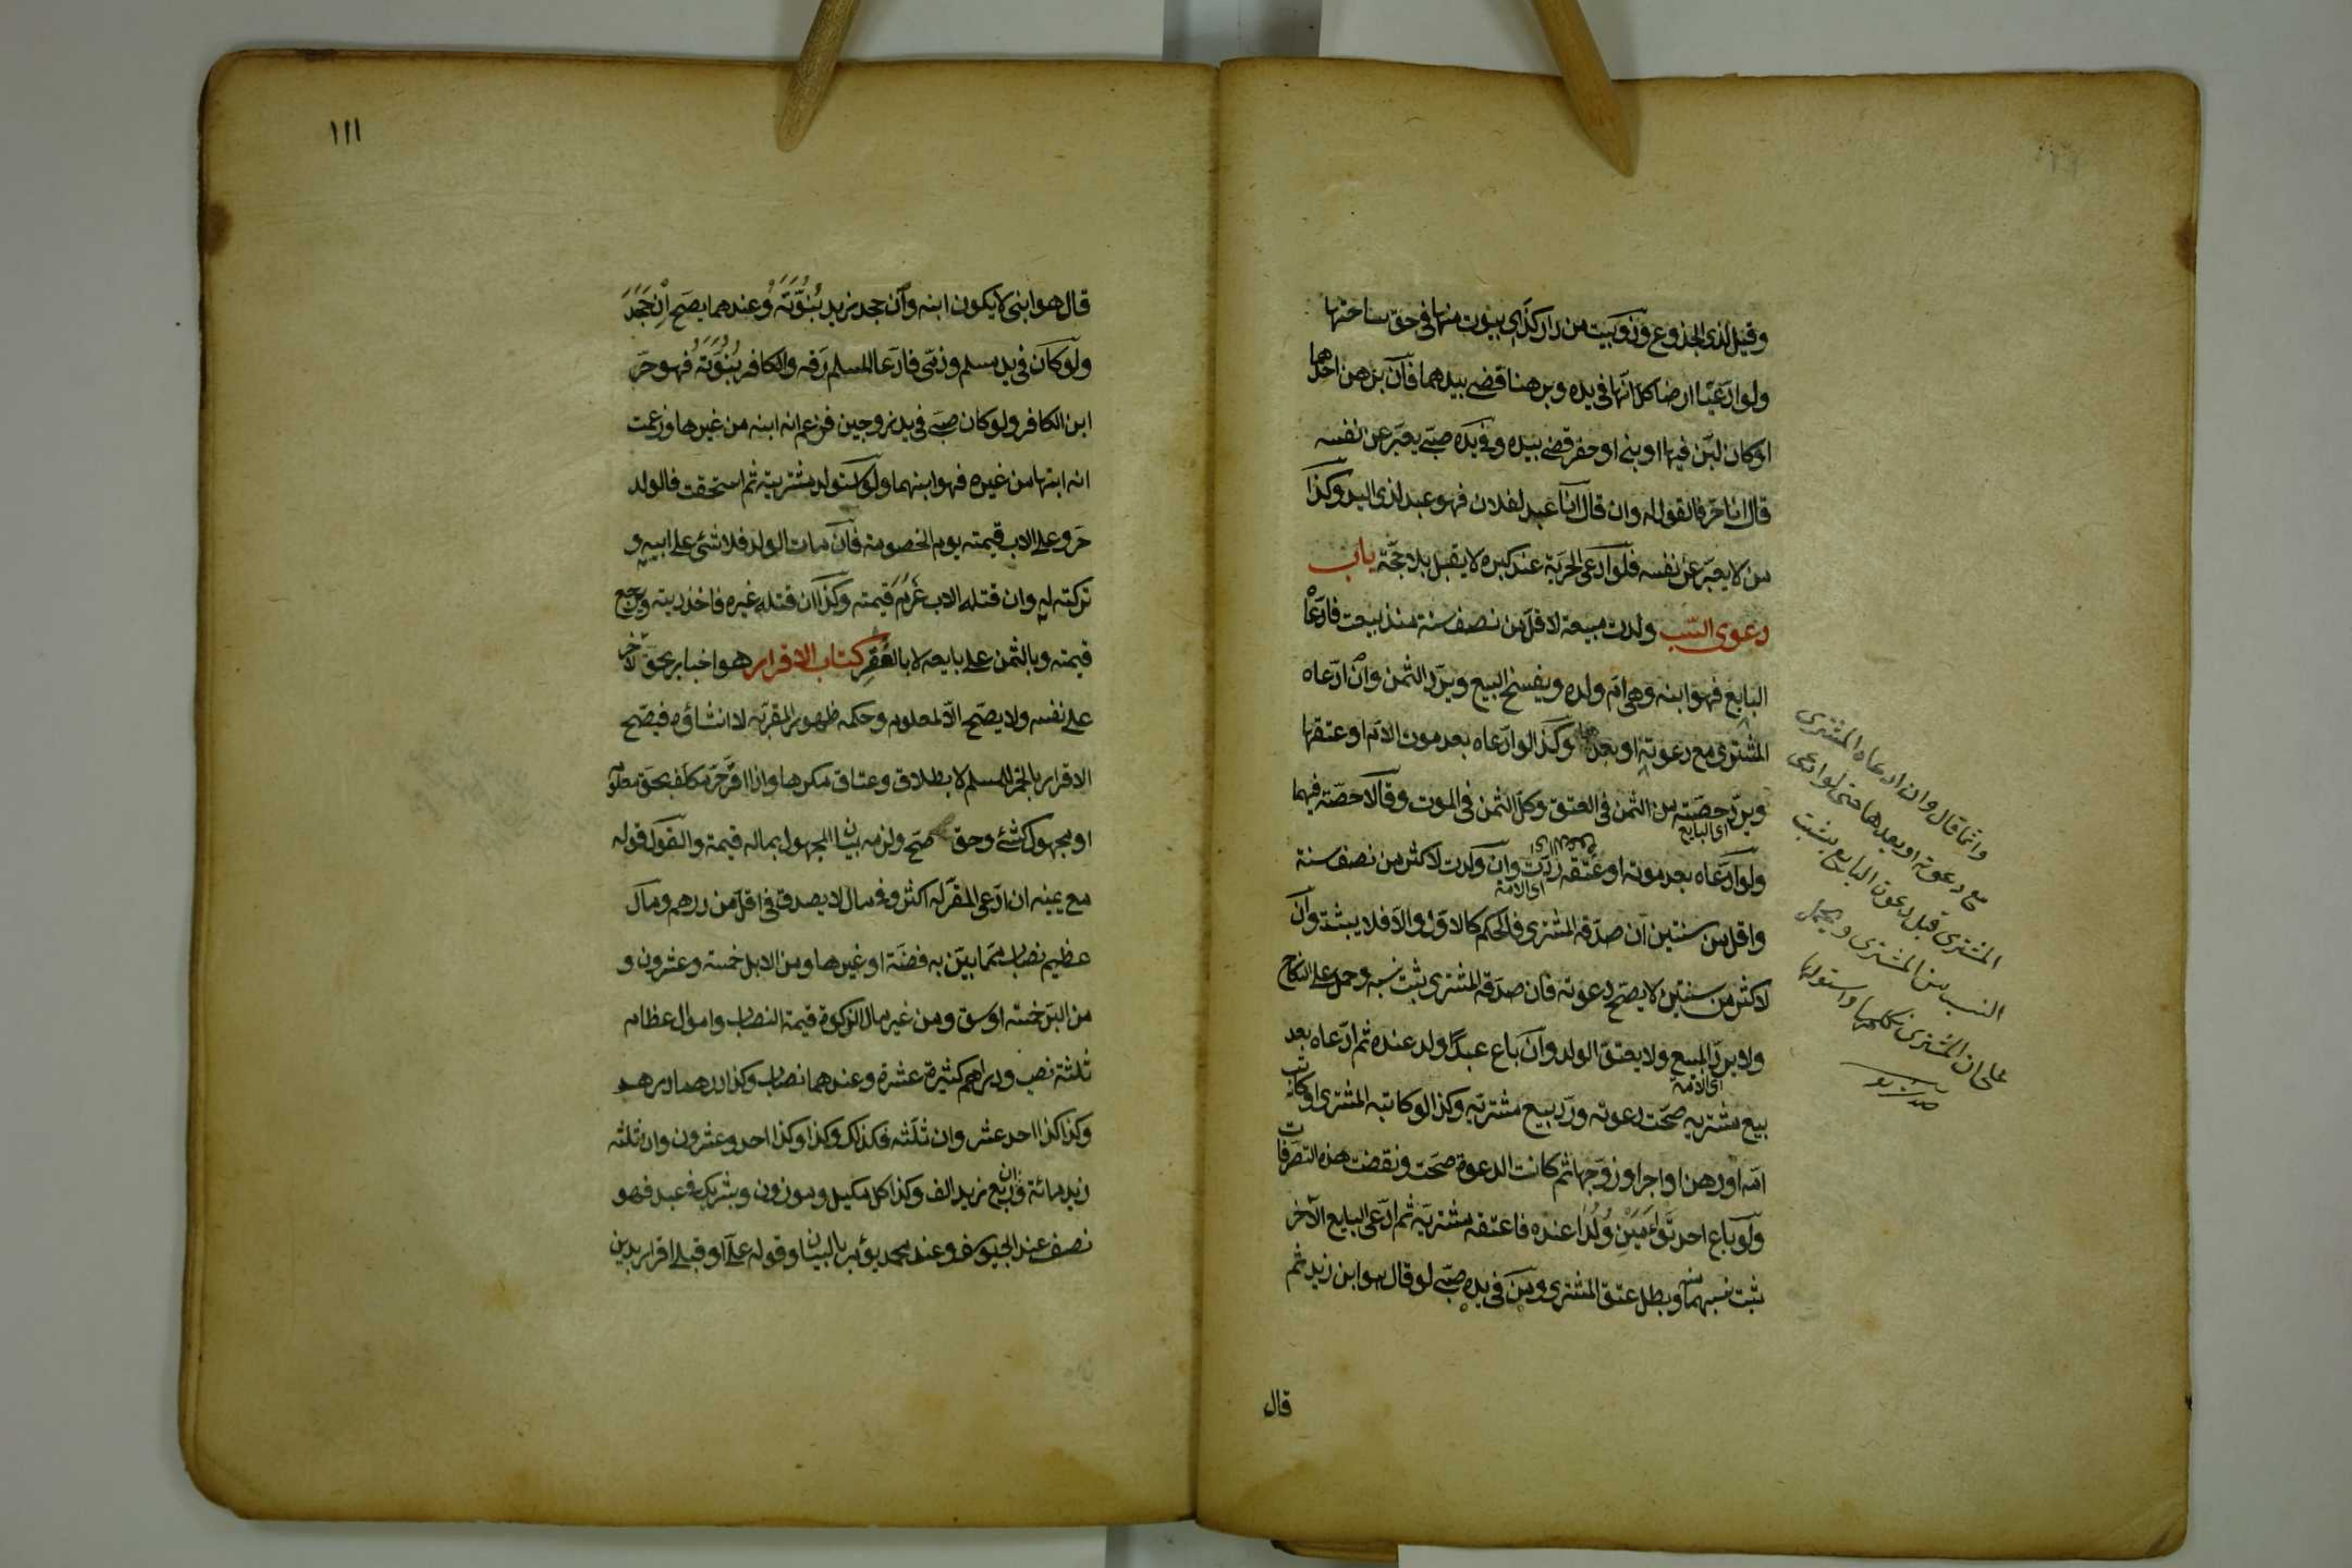 وقيل لذى الجذوع وذو بيت من دار كذى بيوت منها فى حق ساحتها
ولو ادعيا ارضا كل انها فى يده وبرهنا قضى بيدهما فان برهن احدهما
او كان لبّن فيها او بنى او حفر قضى بيده وفى يده صبى يعبّر عن نفسه
قال انا حرّ فالقول له وان قال انا عبد لفلان فهو عبد لذى اليد وكذا
من لا يعبّر عن نفسه فلو ادعى الحرية عند كبره لا يقبل بلا حجّة باب
دعوى النسب ولدت مبيعة لاقل من نصف سنة منذ بيعت فادعاه
البايع فهو ابنه وهى ام ولده ويفسخ البيع ويردّ الثمن وان ادّعاه
المشترى مع دعوته او بعدها وكذا لو ادّعاه بعد موت الام او عتقها
ويردّ حصّته من الثمن فى العتق وكل الثمن فى الموت وقالا حصّته فيهما
اى البايع
ولو ادّعاه بعد موته او عتقه ردّت وان ولدت لاكثر من نصف سنة
اى الامة
واقل من سنتين ان صدّقه المشترى فالحكم كالاوّل والّا فلا يثبت وان
لاكثر من سنتين لا يصحّ دعوته فان صدّقه المشترى يثبت نسبه وحمل على النكاح
ولا يردّ المبيع ولا يعتق الولد وان باع عبدًا ولد عنده ثم ادّعاه بعد
اى الامة
بيع مشتريه صحّت دعوته وردّ بيع مشتريه وكذا لو كاتبه المشترى او كاتب
امه او رهن او اجر او زوّجها ثم كانت الدعوة صحّت ونقضت هذه التصرفات
ولو باع احد توأمين ولدا عنده فاعتقه مشتريه ثم ادّعى البايع الآخر
ثبت نسبهما منه وبطل عتق المشترى ومن فى يده صبىّ لو قال هو ابن زيد ثم
قال
وانما قال وان ادعاه المشترى
مع دعوته او بعدها حتى لو ادعى
المشترى قبل دعوة البايع يثبت
النسب من المشترى ويحمل
على ان المشترى نكحها واستولدها
١١١
قال هو ابنى لا يكون ابنه وان جحد زيد بُنُوَّتَهُ وعندهما يصح اِن جَحَدَ
ولو كان فى يد مسلم وذمّى فادّعا المسلم رقه والكافر بُنُوَّتَهُ فهو حرّ
ابن الكافر ولو كان صبى فى يد زوجين فزعم انه ابنه من غيرها وزعمت
انه ابنها من غيره فهو ابنهما ولو استولد مشتريته ثم استحقت فالولد
حر وعلى الاب قيمته يوم الخصومة فان مات الولد فلا شئ على ابيه و
تركته له وان قتله الاب غَرِمَ قيمته وكذا ان قتله غيره فاخذ ديته ويرجع
قيمته وبالثمن على بايعه لا بالعُقرِ كتاب الاقرار هو اخبار بحق لآخر
على نفسه ولا يصحّ الّا لمعلوم وحكمه ظهور المقرّ به لا انشاؤه فيصّح
الاقرار بالخمر للمسلم لا بطلاق وعتاق مكرها واذا اقرّ حرّ مكلف بحق معلوم
او مجهول كشئ وحق صحّ ولزمه بيان المجهول بما له قيمة والقول قوله
مع يمينه ان ادّعى المقرّ له اكثر وفى مال لا يصدق فى اقلّ من درهم ومال
عظيم نصاب ممّا بيّن به فضّة او غيرها ومن الابل خمسة وعشرون و
من البرّ خمسة اوسق ومن غير مال الزكوة قيمة النصاب واموال عظام
ثلثة نصب ودراهم كثيرة عشرة وعندهما نصاب وكذا درهما درهم
وكذا كذا احد عشر وان ثلّثه فكذلك وكذا وكذا احد وعشرون وان ثلّثه
زيد مائة وان ربّع زيد الف وكذا كل مكيل وموزون وبشرك فى عبد فهو
نصف عند ابى يوسف وعند محمد يؤمر بالبيان وقوله علىّ او قبلى اقرار بدين